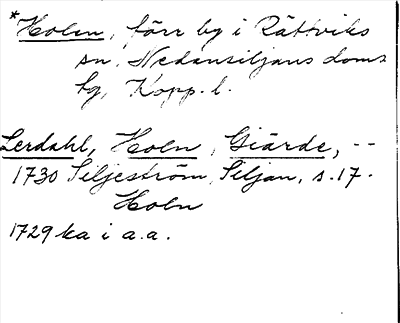 *Holen, förr by i Rättviks
sn, Nedansiljans doms
bg, Kopp. l.
Lerdahl, Holn, Giärde, --
1730 Siljeström, Siljan, s. 17.
Holn
1729 ka i a.a.